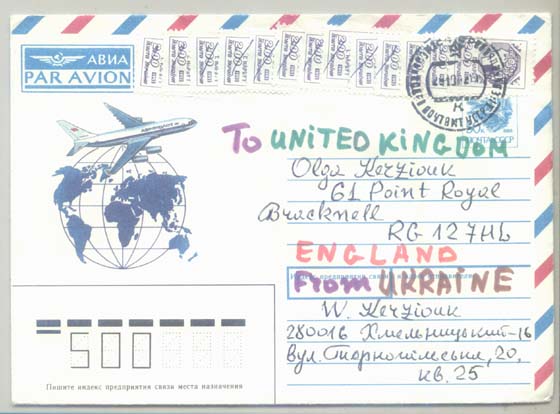 АВИА
PAR AVION
ПОЧТА СССР
To UNITED KINGDOM
Olga Kerziouk
61 Point Royal
Bracknell
RG 127HL
ENGLAND
From UKRAINE
W. Kerziouk
280016 Хмельницький-16
вул. Тернопільська, 20,
кв. 25
500
Пишите индекс предприятия связи места назначения